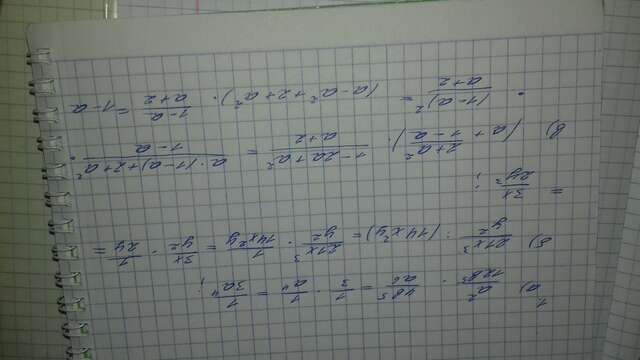 1.
а) a²/12b⁵ · 4b⁵/a⁶ = 1/3 · 1/a⁴ = 1/3a⁴ ;
б) 21x³/y² : (14x²y) = 21x³/y² · 1/14x²y = 3x/y² · 1/2y =
= 3x/2y³ ;
в) (a + 2+a²/1-a) · 1-2a+a²/a+2 = a·(1-a)+2+a²/1-a ·
· (1-a)²/a+2 = (a-a²+2+a²) · 1-a/a+2 = 1-a